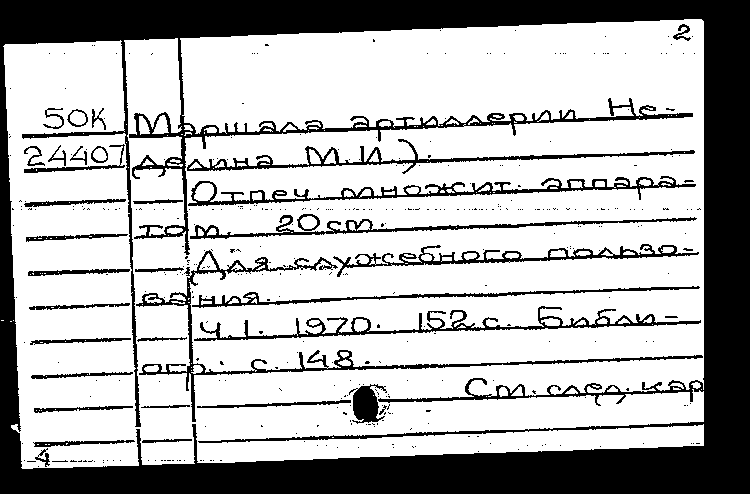 2
50К Маршала артиллерии Не-
24407 делина М.И.).
Отпеч. множит. аппара-
том. 20 см.
Для служебного пользо-
вания.
Ч.1. 1970. 152 с. Библи-
огр.: с. 148.
См. след. кар
4